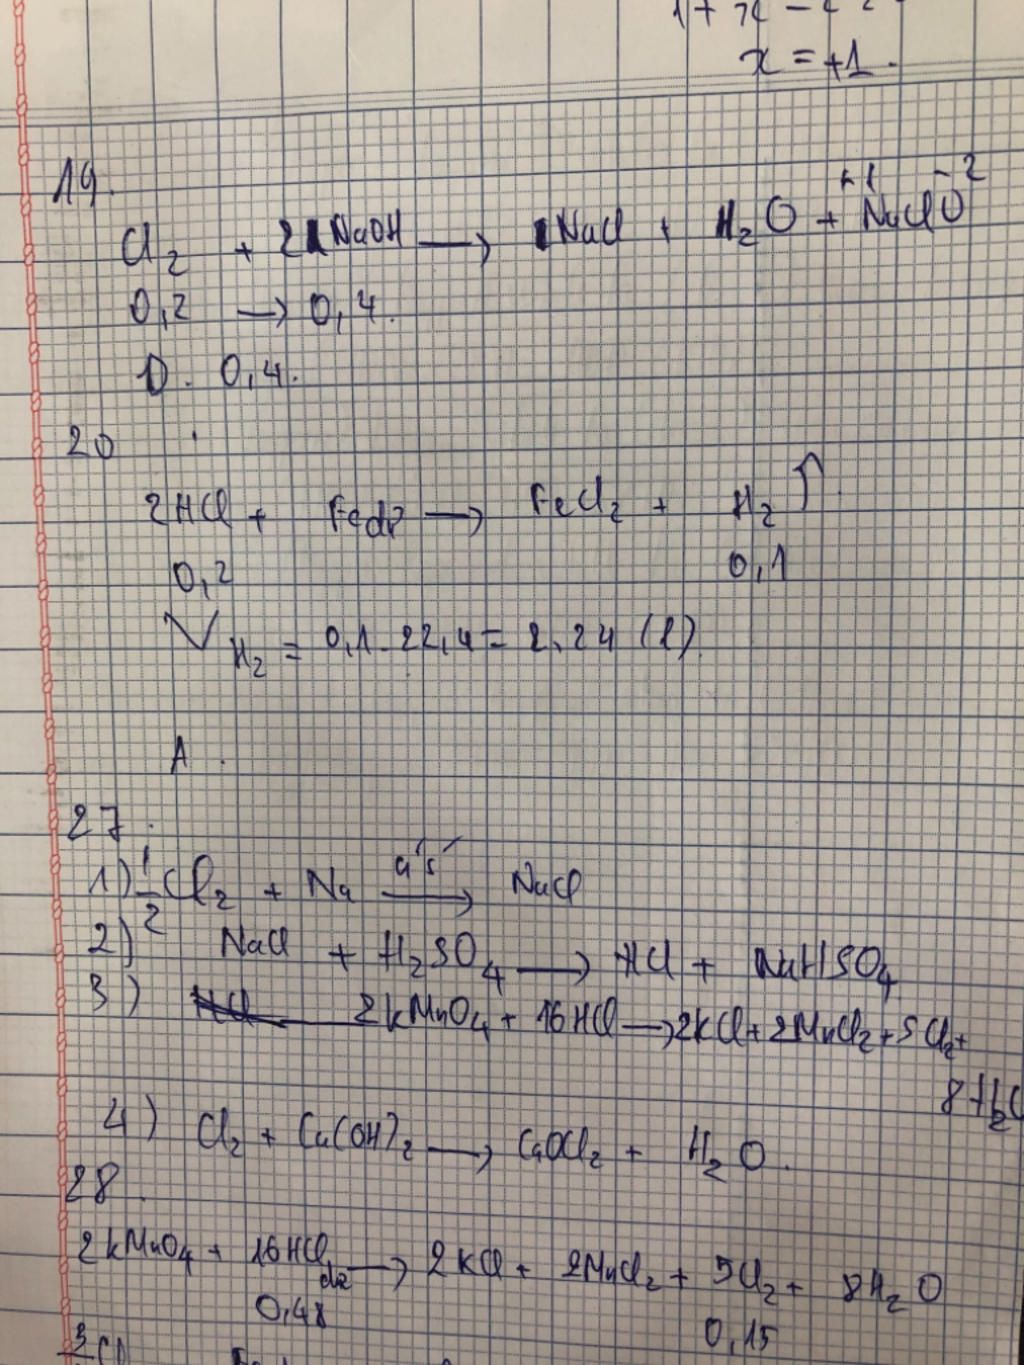 x = +1.
19.
+1 -2
Cl2 + 2 NaOH → NaCl + H2O + NaClO
0,2 → 0,4.
D. 0,4.
20
2HCl + Fe → FeCl2 + H2 ↑
0,2 0,1
V H2 = 0,1.22,4 = 2,24 (l).
A.
27.
1) 1/2 Cl2 + Na as→ NaCl
2) NaCl + H2SO4 → HCl + NaHSO4
3) 2KMnO4 + 16HCl → 2KCl + 2MnCl2 + 5Cl2 +
8H2O
4) Cl2 + Ca(OH)2 → CaOCl2 + H2O.
28.
2KMnO4 + 16HCl → 2KCl + 2MnCl2 + 5Cl2 + 8H2O
0,48 0,15